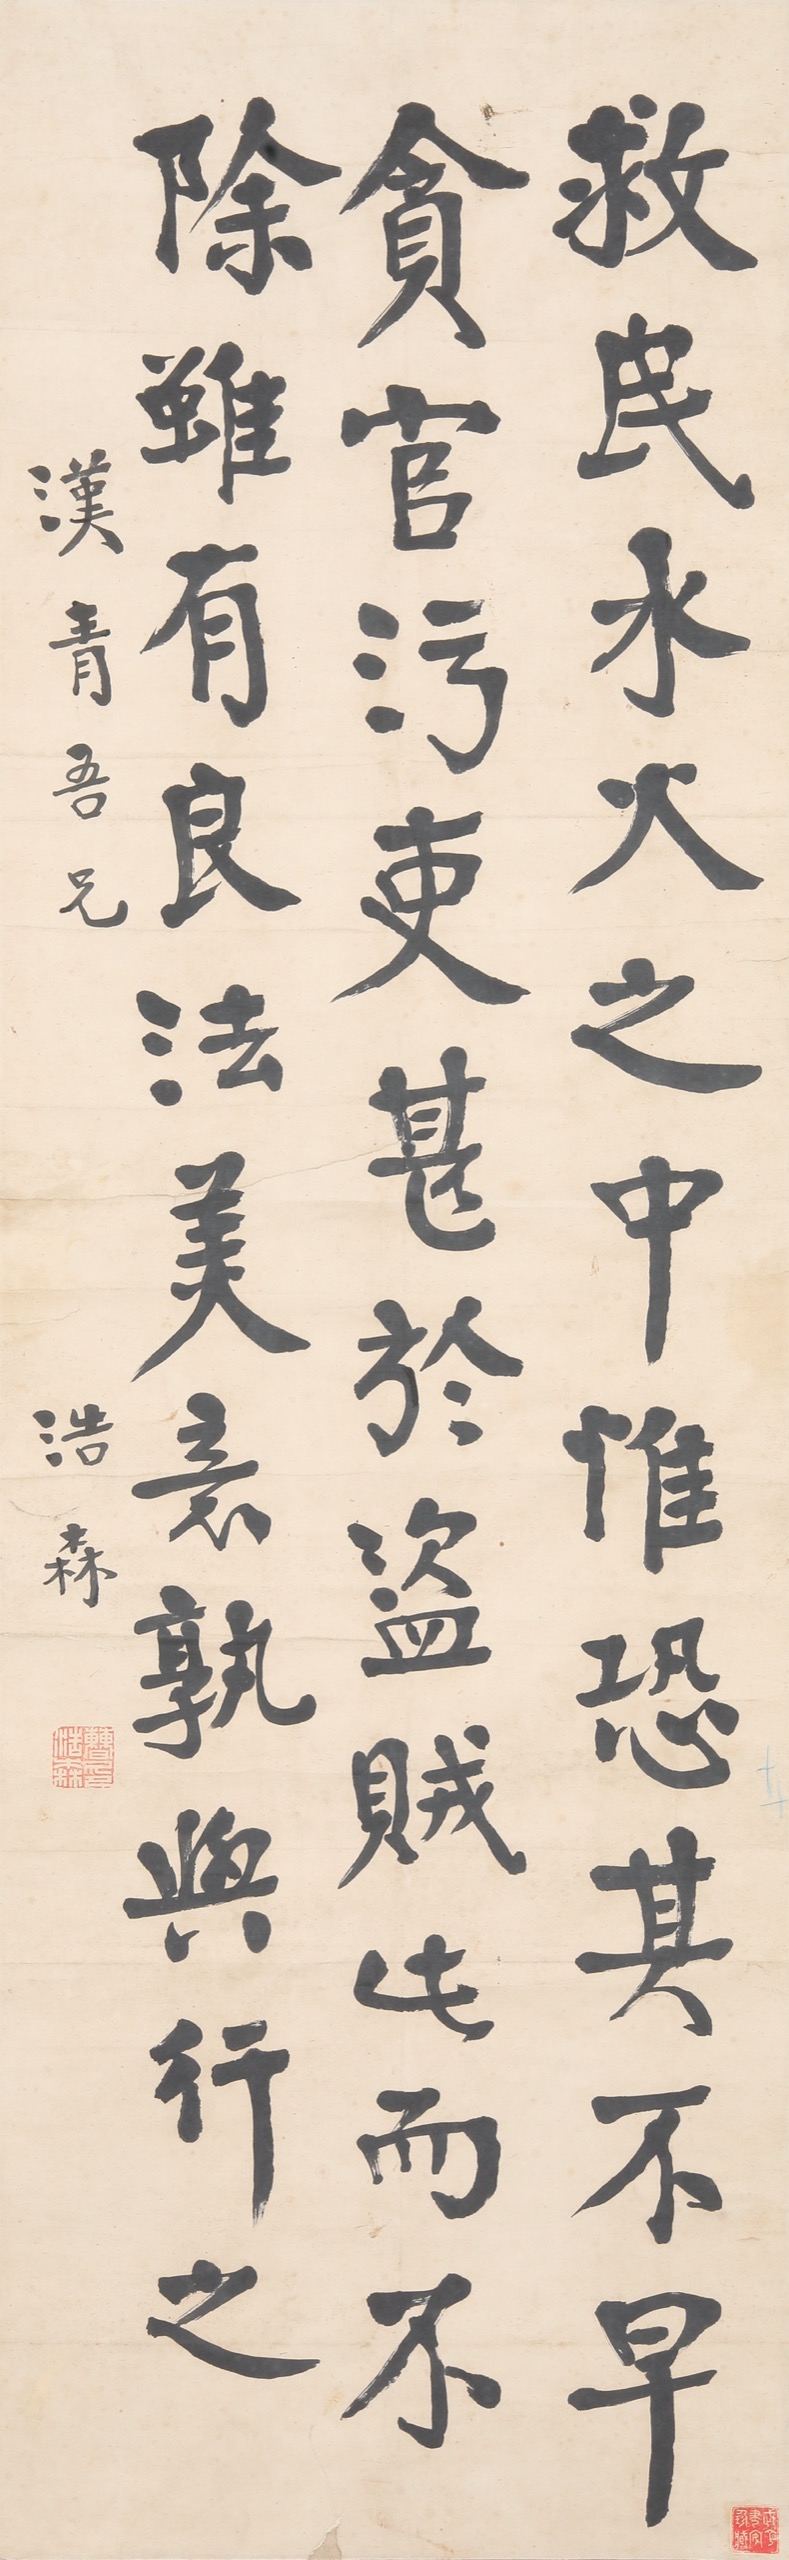 救民水火之中惟恐其不早
貪官污吏甚於盜賊此而不
除雖有良法美意孰與行之
漢青吾兄
浩森